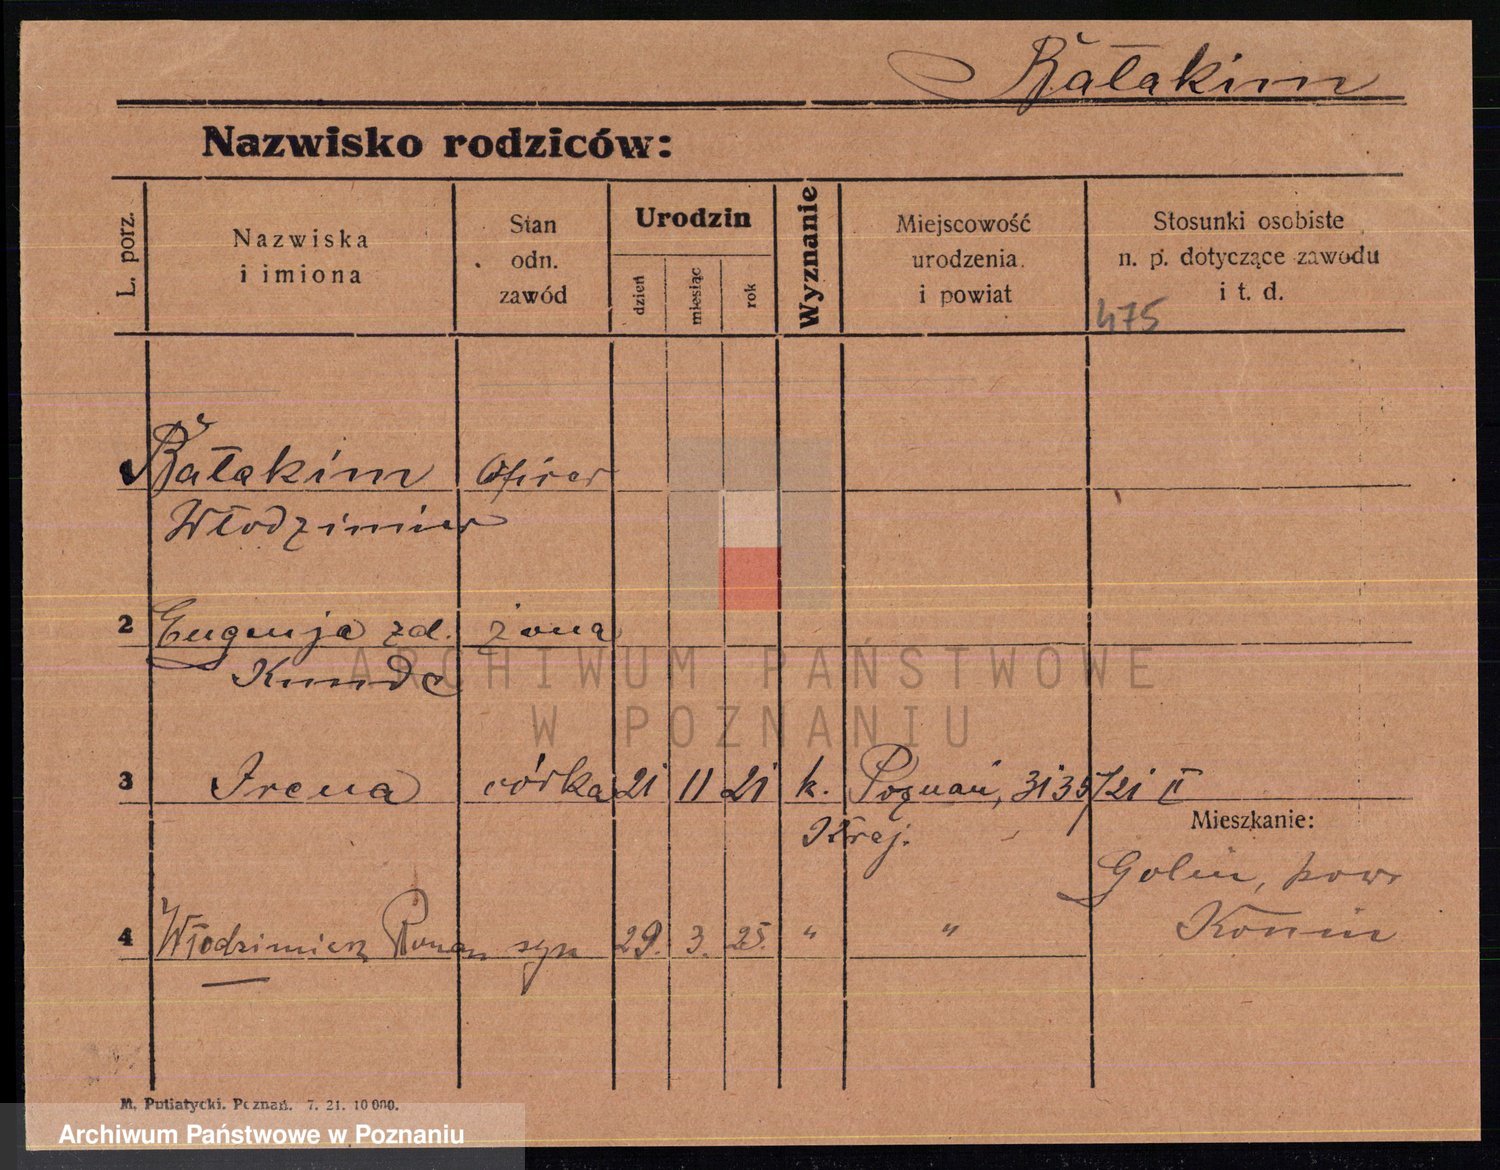 Bałakim
Nazwisko rodziców:
L. porz.
Nazwiska
i imiona
Stan
odn.
zawód
Urodzin
dzień
miesiąc
rok
Wyznanie
Miejscowość
urodzenia
i powiat
Stosunki osobiste
n. p. dotyczące zawodu
i t. d.
475
Bałakim
Włodzimier
2 Eugenja zd. żona
3 Irena córka 21 11 21 k. Poznań, 3135/21 II
Kraj.
Mieszkanie:
Golin, pow.
Konin
4 Włodzimierz Roman syn 29. 3. 25. " "
ARCHIWUM PAŃSTWOWE
W POZNANIU
M. Putiatycki. Poznań. 7. 21. 10 000.
Archiwum Państwowe w Poznaniu